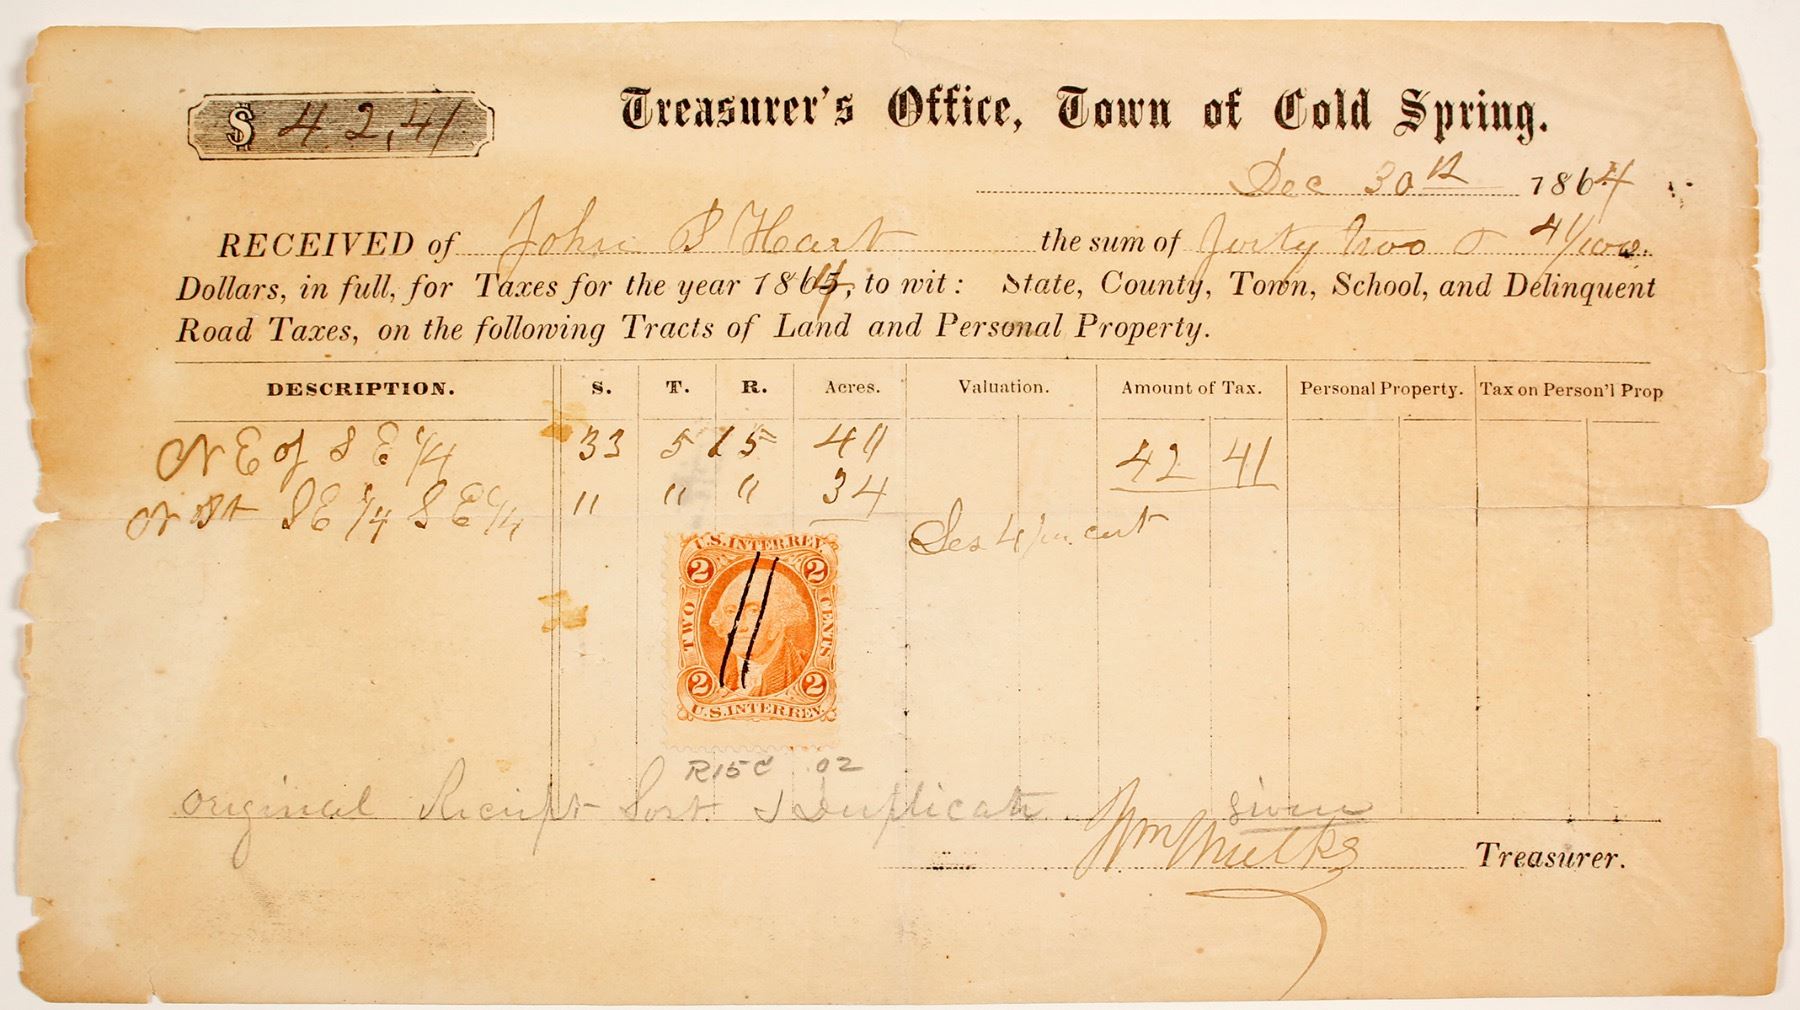 $ 42,41
Treasurer's Office, Town of Cold Spring.
Dec 30th 1864
RECEIVED of John S Hart the sum of Forty two & 41/100
Dollars, in full, for Taxes for the year 1864, to wit: State, County, Town, School, and Delinquent
Road Taxes, on the following Tracts of Land and Personal Property.
DESCRIPTION. S. T. R. Acres. Valuation. Amount of Tax. Personal Property. Tax on Person'l Prop
N E of S E 1/4 33 5 15 40 42 41
N S E 1/4 S E 1/4 " " " 34
4 per cent
U.S. INTER. REV.
2 2
TWO CENTS
2 2
U.S. INTER. REV.
R15c 02
Original Receipt Lost & Duplicate given
Wm Mulks Treasurer.